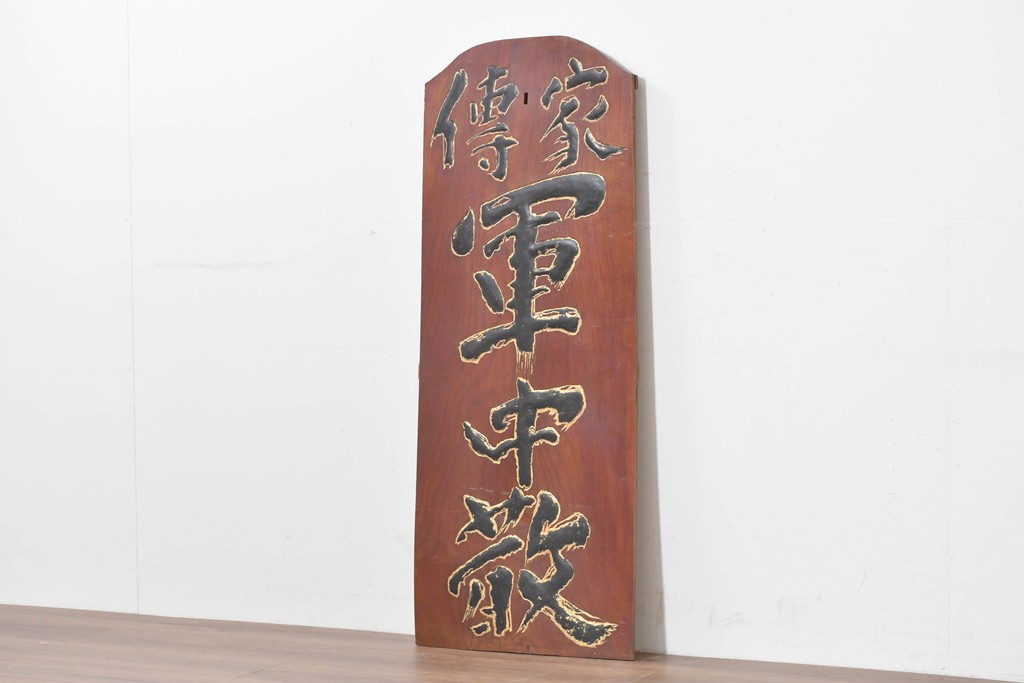 家傳
軍中散